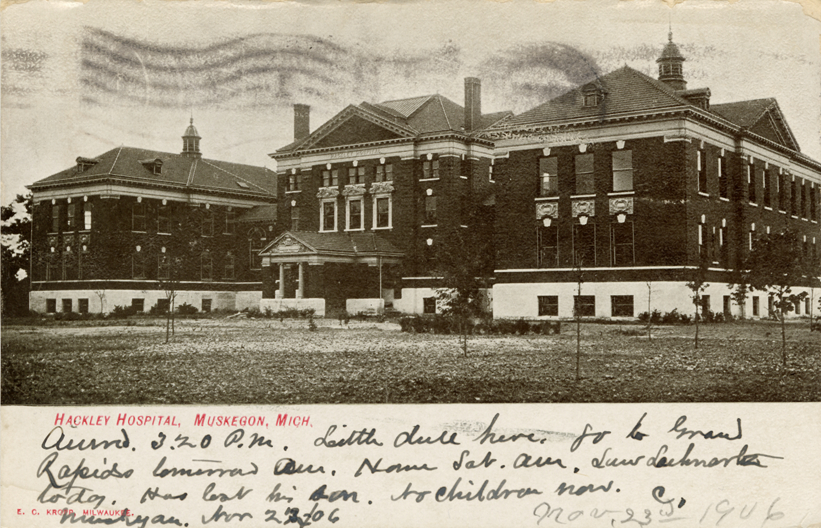 HACKLEY HOSPITAL, MUSKEGON, MICH.
Arrived. 3.20 P.M. Little dull here. Go to Grand
Rapids tomorrow a.m. Home Sat. a.m. Saw
today. Has lost his son. No children now. C.
E. C. KROPP, MILWAUKEE.
Muskegon. Nov 23/06
Nov. 23rd 1906